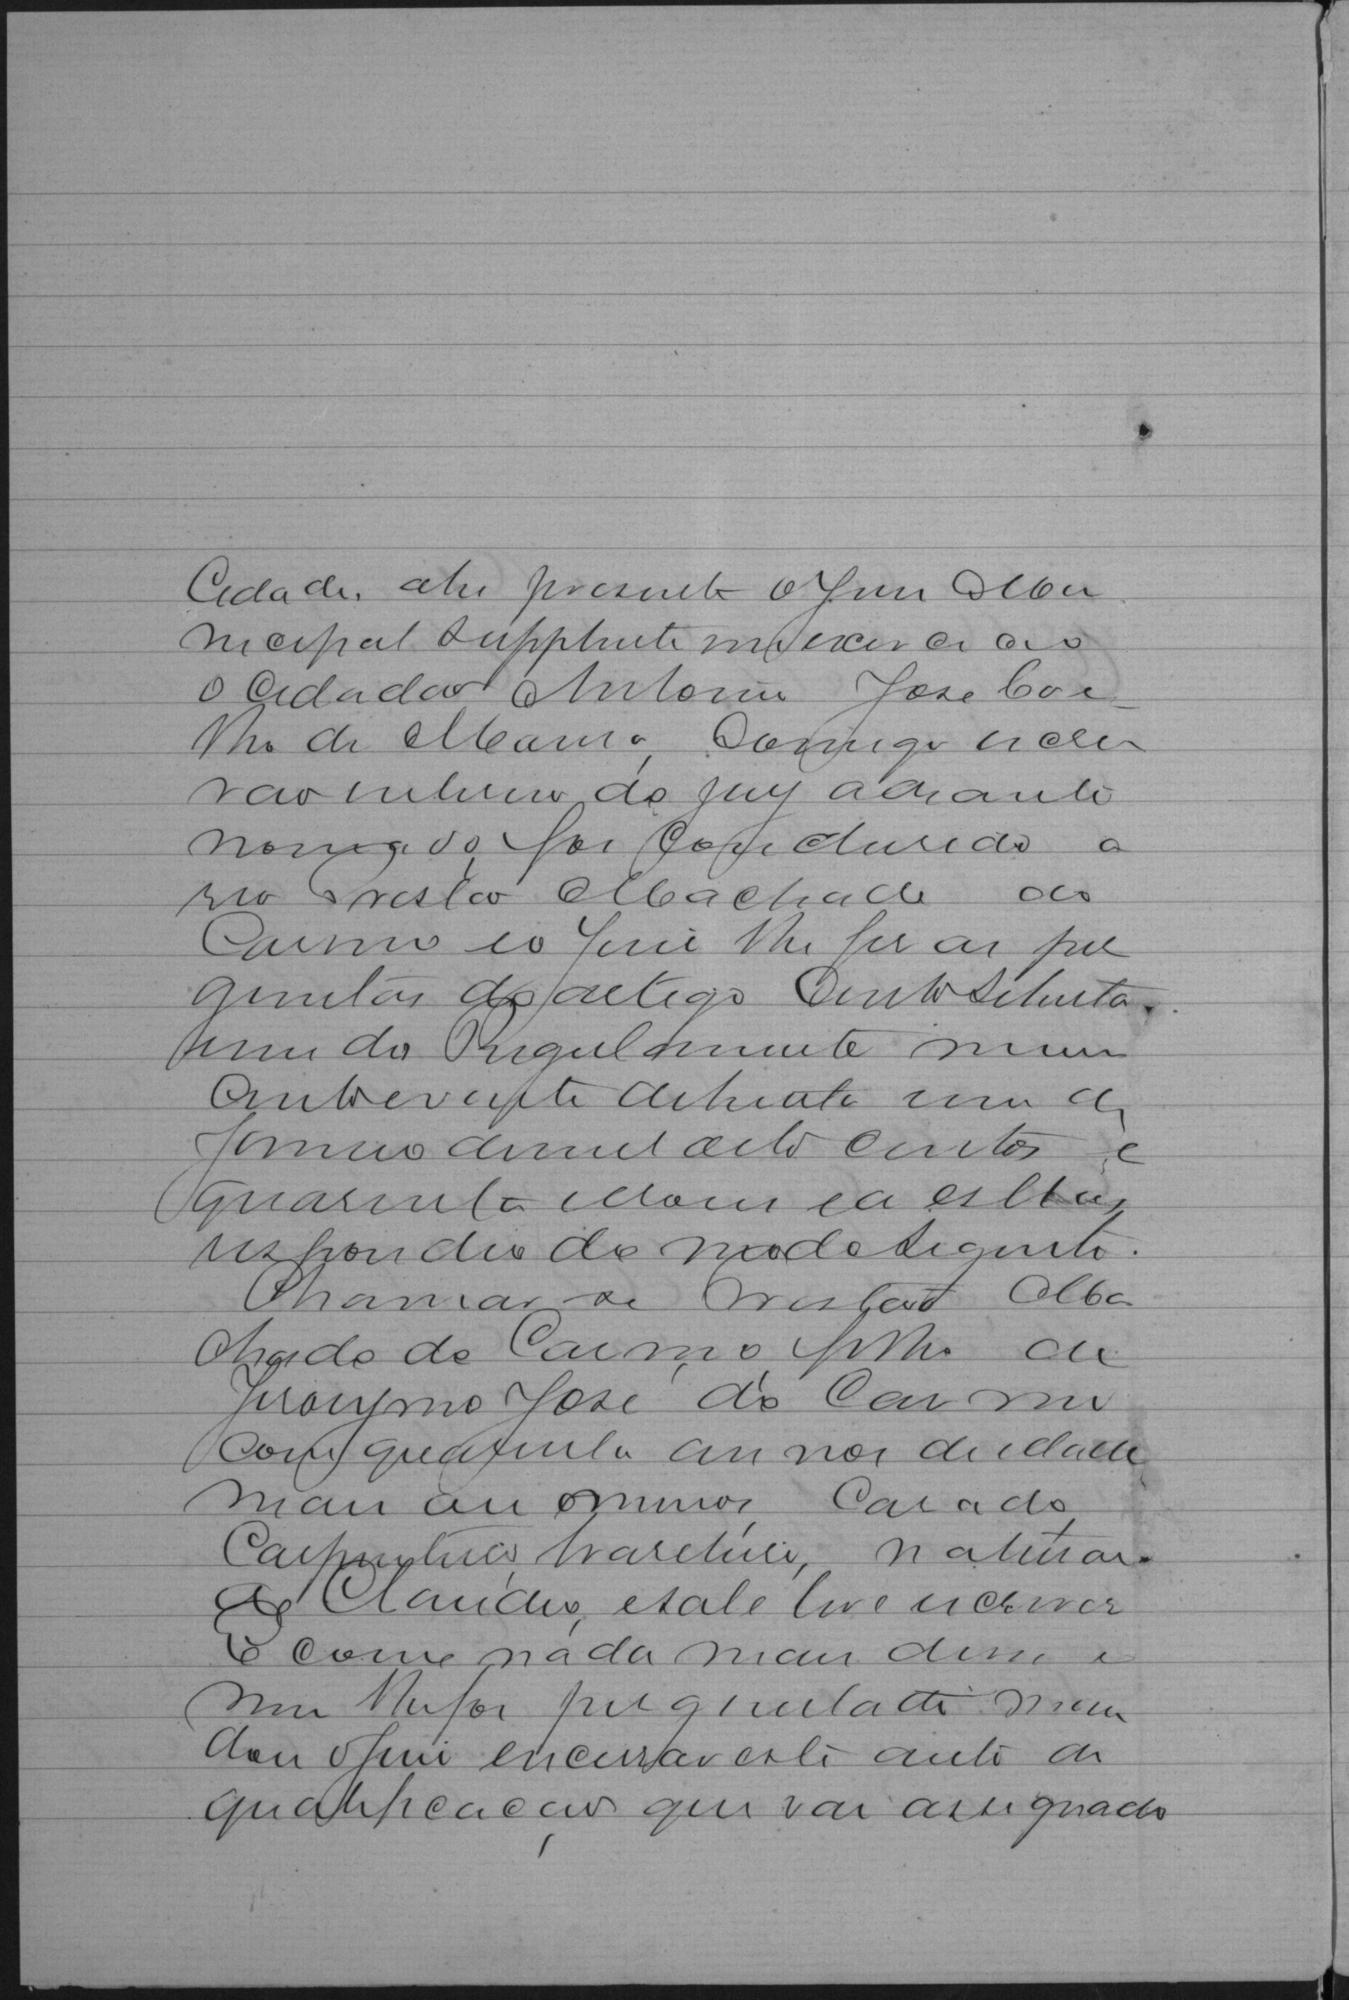 Cidade, ahi presente o Juiz Mu
nicipal Supplente em exercicio
o Cidadão Antonio José Coe-
lho de Moura, Comigo escri
vão interino do juiz adiante
nomeado, foi Conduzido o
réo Tristão Machado do
Carmo eo Juiz lhe fez as per
guntas do artigo Cento setenta
um do Regulamento numero
Cento e vinte de trinta um de
Janeiro de mil oito centos e
quarenta e dous e a estas
respondeo do modo seguinte.
Chamar-se Tristão Ma
chado do Carmo, filho de
Jeronymo José do Carmo
com quarenta annos de idade
mais ou menos, Casado,
Carpinteiro, brazileiro, natural
do Claudio, e sabe ler e escrever
E como nada mais disse e
nem lhe foi perguntado man
dou o Juiz encerrar este auto de
qualificação que vai assignado